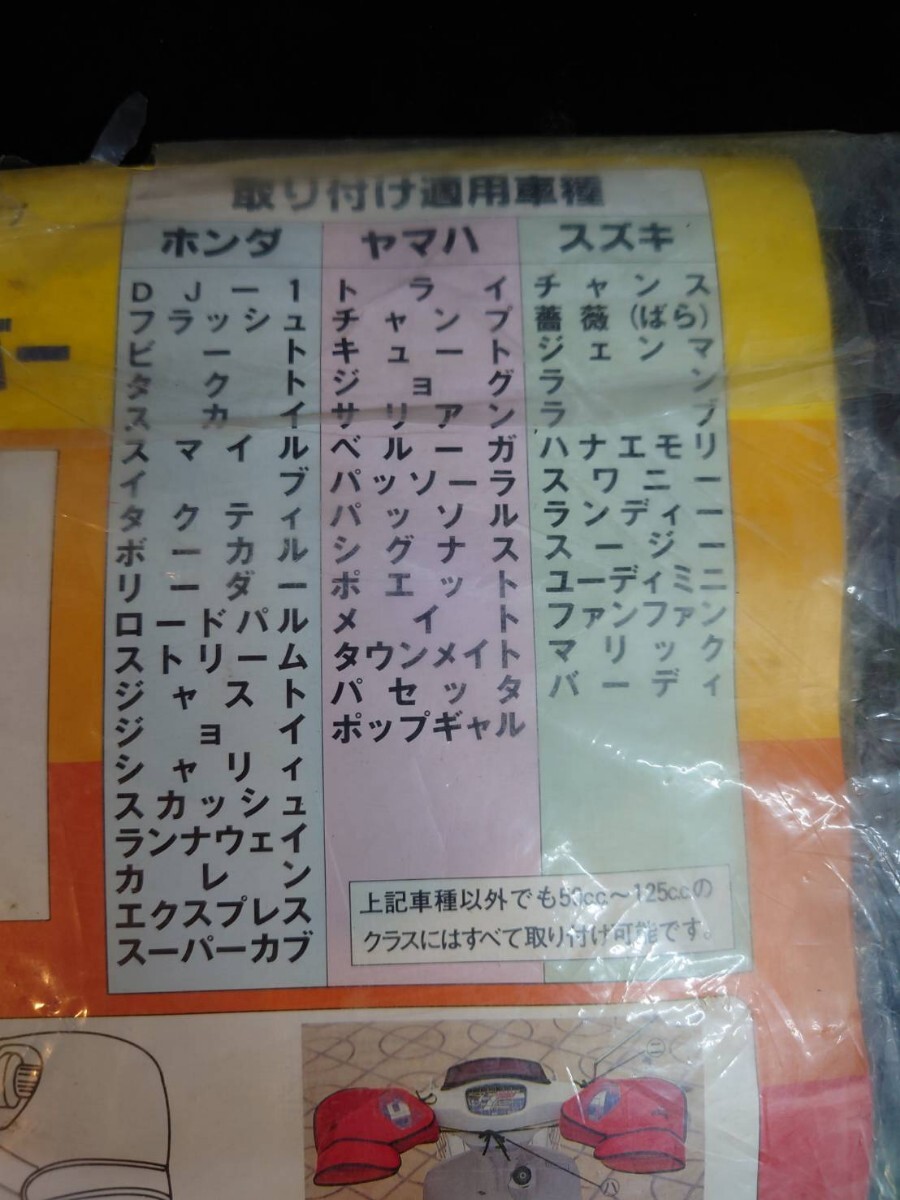 取り付け適用車種
ホンダ
DJー1
フラッシュ
ビート
タクト
スカイ
スマイル
イブ
タクティ
ボーカル
リーダー
ロードパル
ストリーム
ジャスト
ジョイ
シャリィ
スカッシュ
ランナウェイ
カレン
エクスプレス
スーパーカブ
ヤマハ
トライ
チャンプ
キュート
ジョグ
サリアン
ベルーガ
パッソーラ
パッソル
シグナス
ポエット
メイト
タウンメイト
パセッタ
ポップギャル
スズキ
チャンス
薔薇(ばら)
ジェンマ
ラン
ラブ
ハナエモリ
スワニー
ランディー
スージー
ユーディミニ
ファンファン
マリック
バーディ
上記車種以外でも50cc〜125ccの
クラスにはすべて取り付け可能です。
ニ
ハ